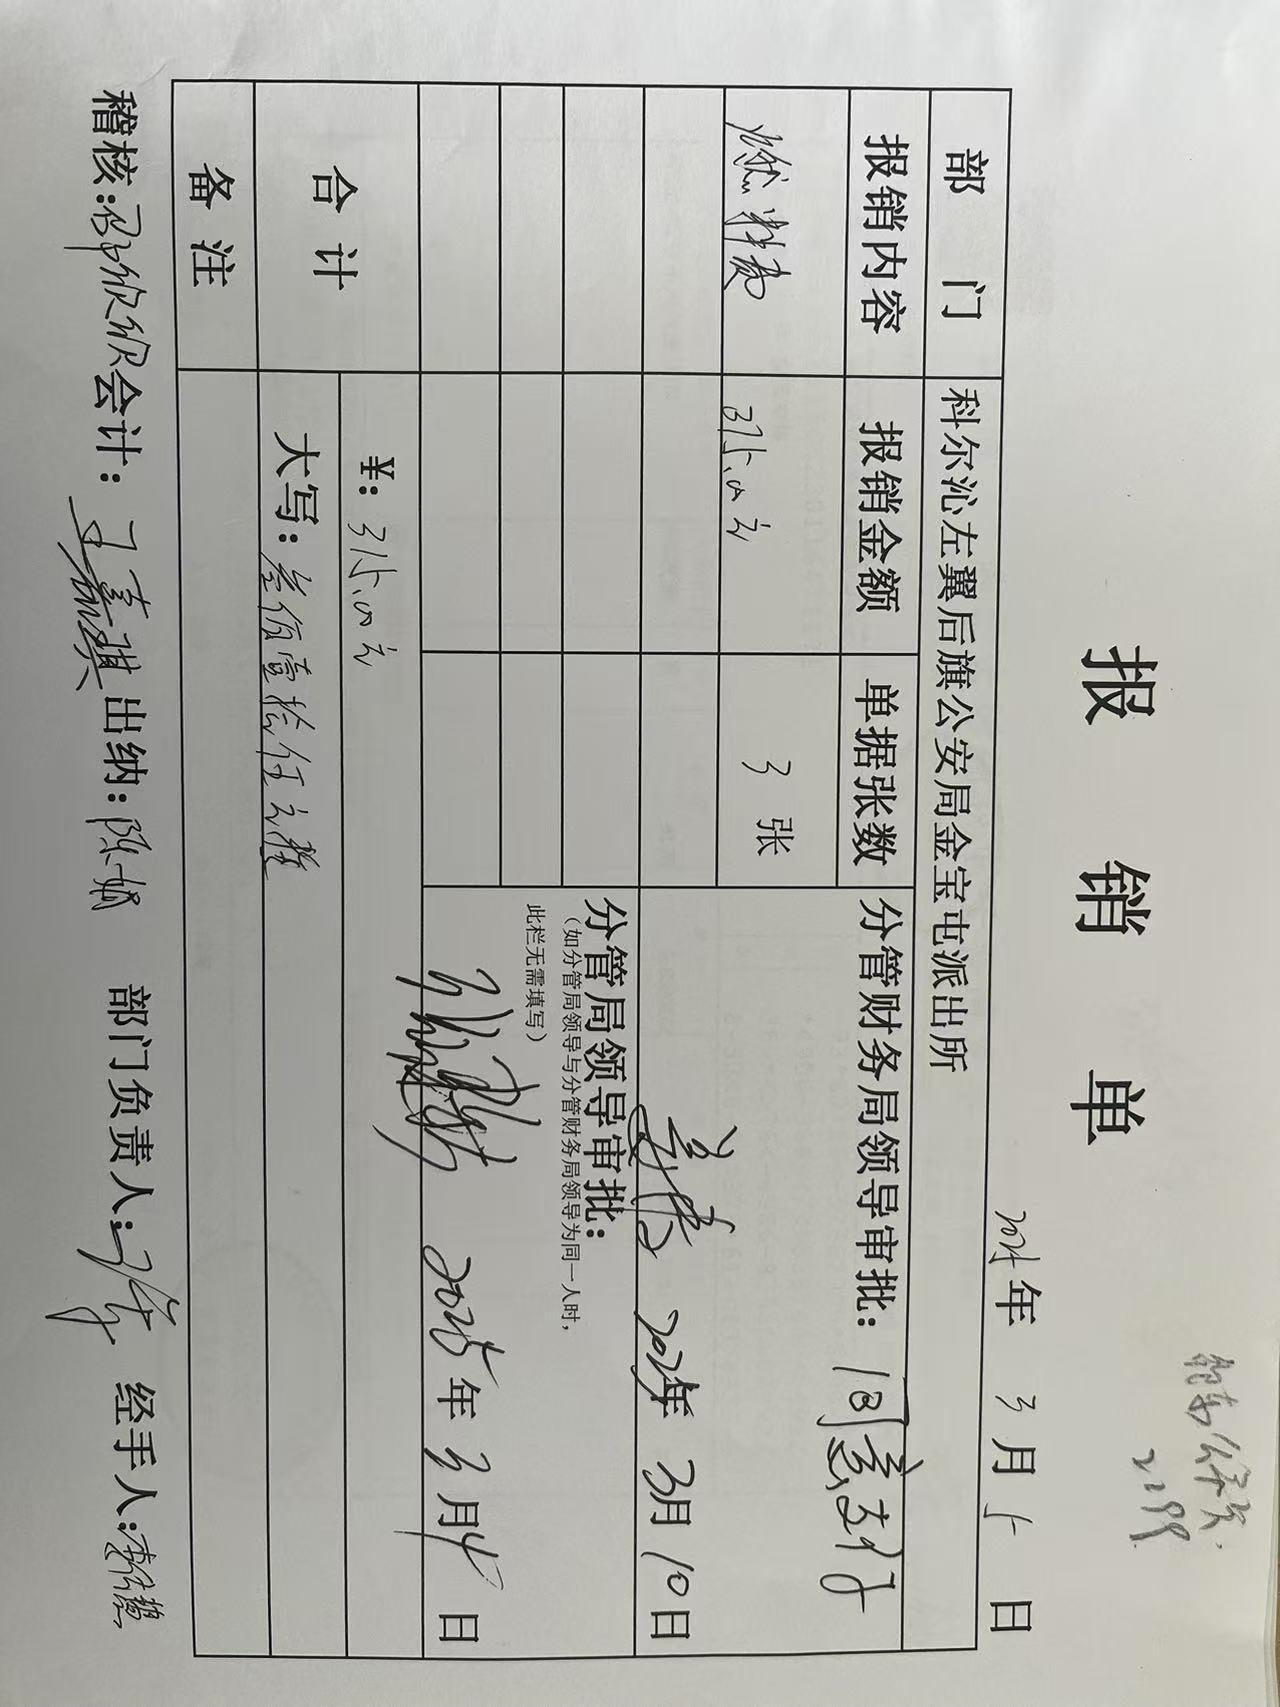 报销单
2025年 3月 5日
部门 科尔沁左翼后旗公安局金宝屯派出所
报销内容 报销金额 单据张数 分管财务局领导审批：同意支付
燃料费 315.00元 3张
2025年 3月 10日
分管局领导审批：
（如分管局领导与分管财务局领导为同一人时，
此栏无需填写）
2025年 3月 4日
合计 ¥：315.00元
大写：叁佰壹拾伍元整
备注
稽核： 会计：王嘉琪 出纳：陈娟 部门负责人： 经手人：